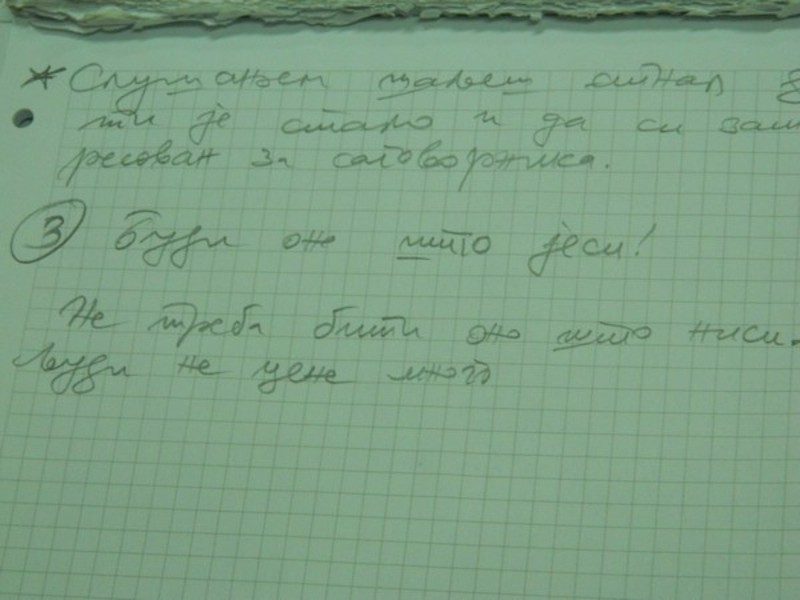 * Слушањем шаљеш сигнал
ти је стало и да си заин
ресован за саговорника.
3 Буди оно што јеси!
Не треба бити оно што ниси.
Људи не цене много